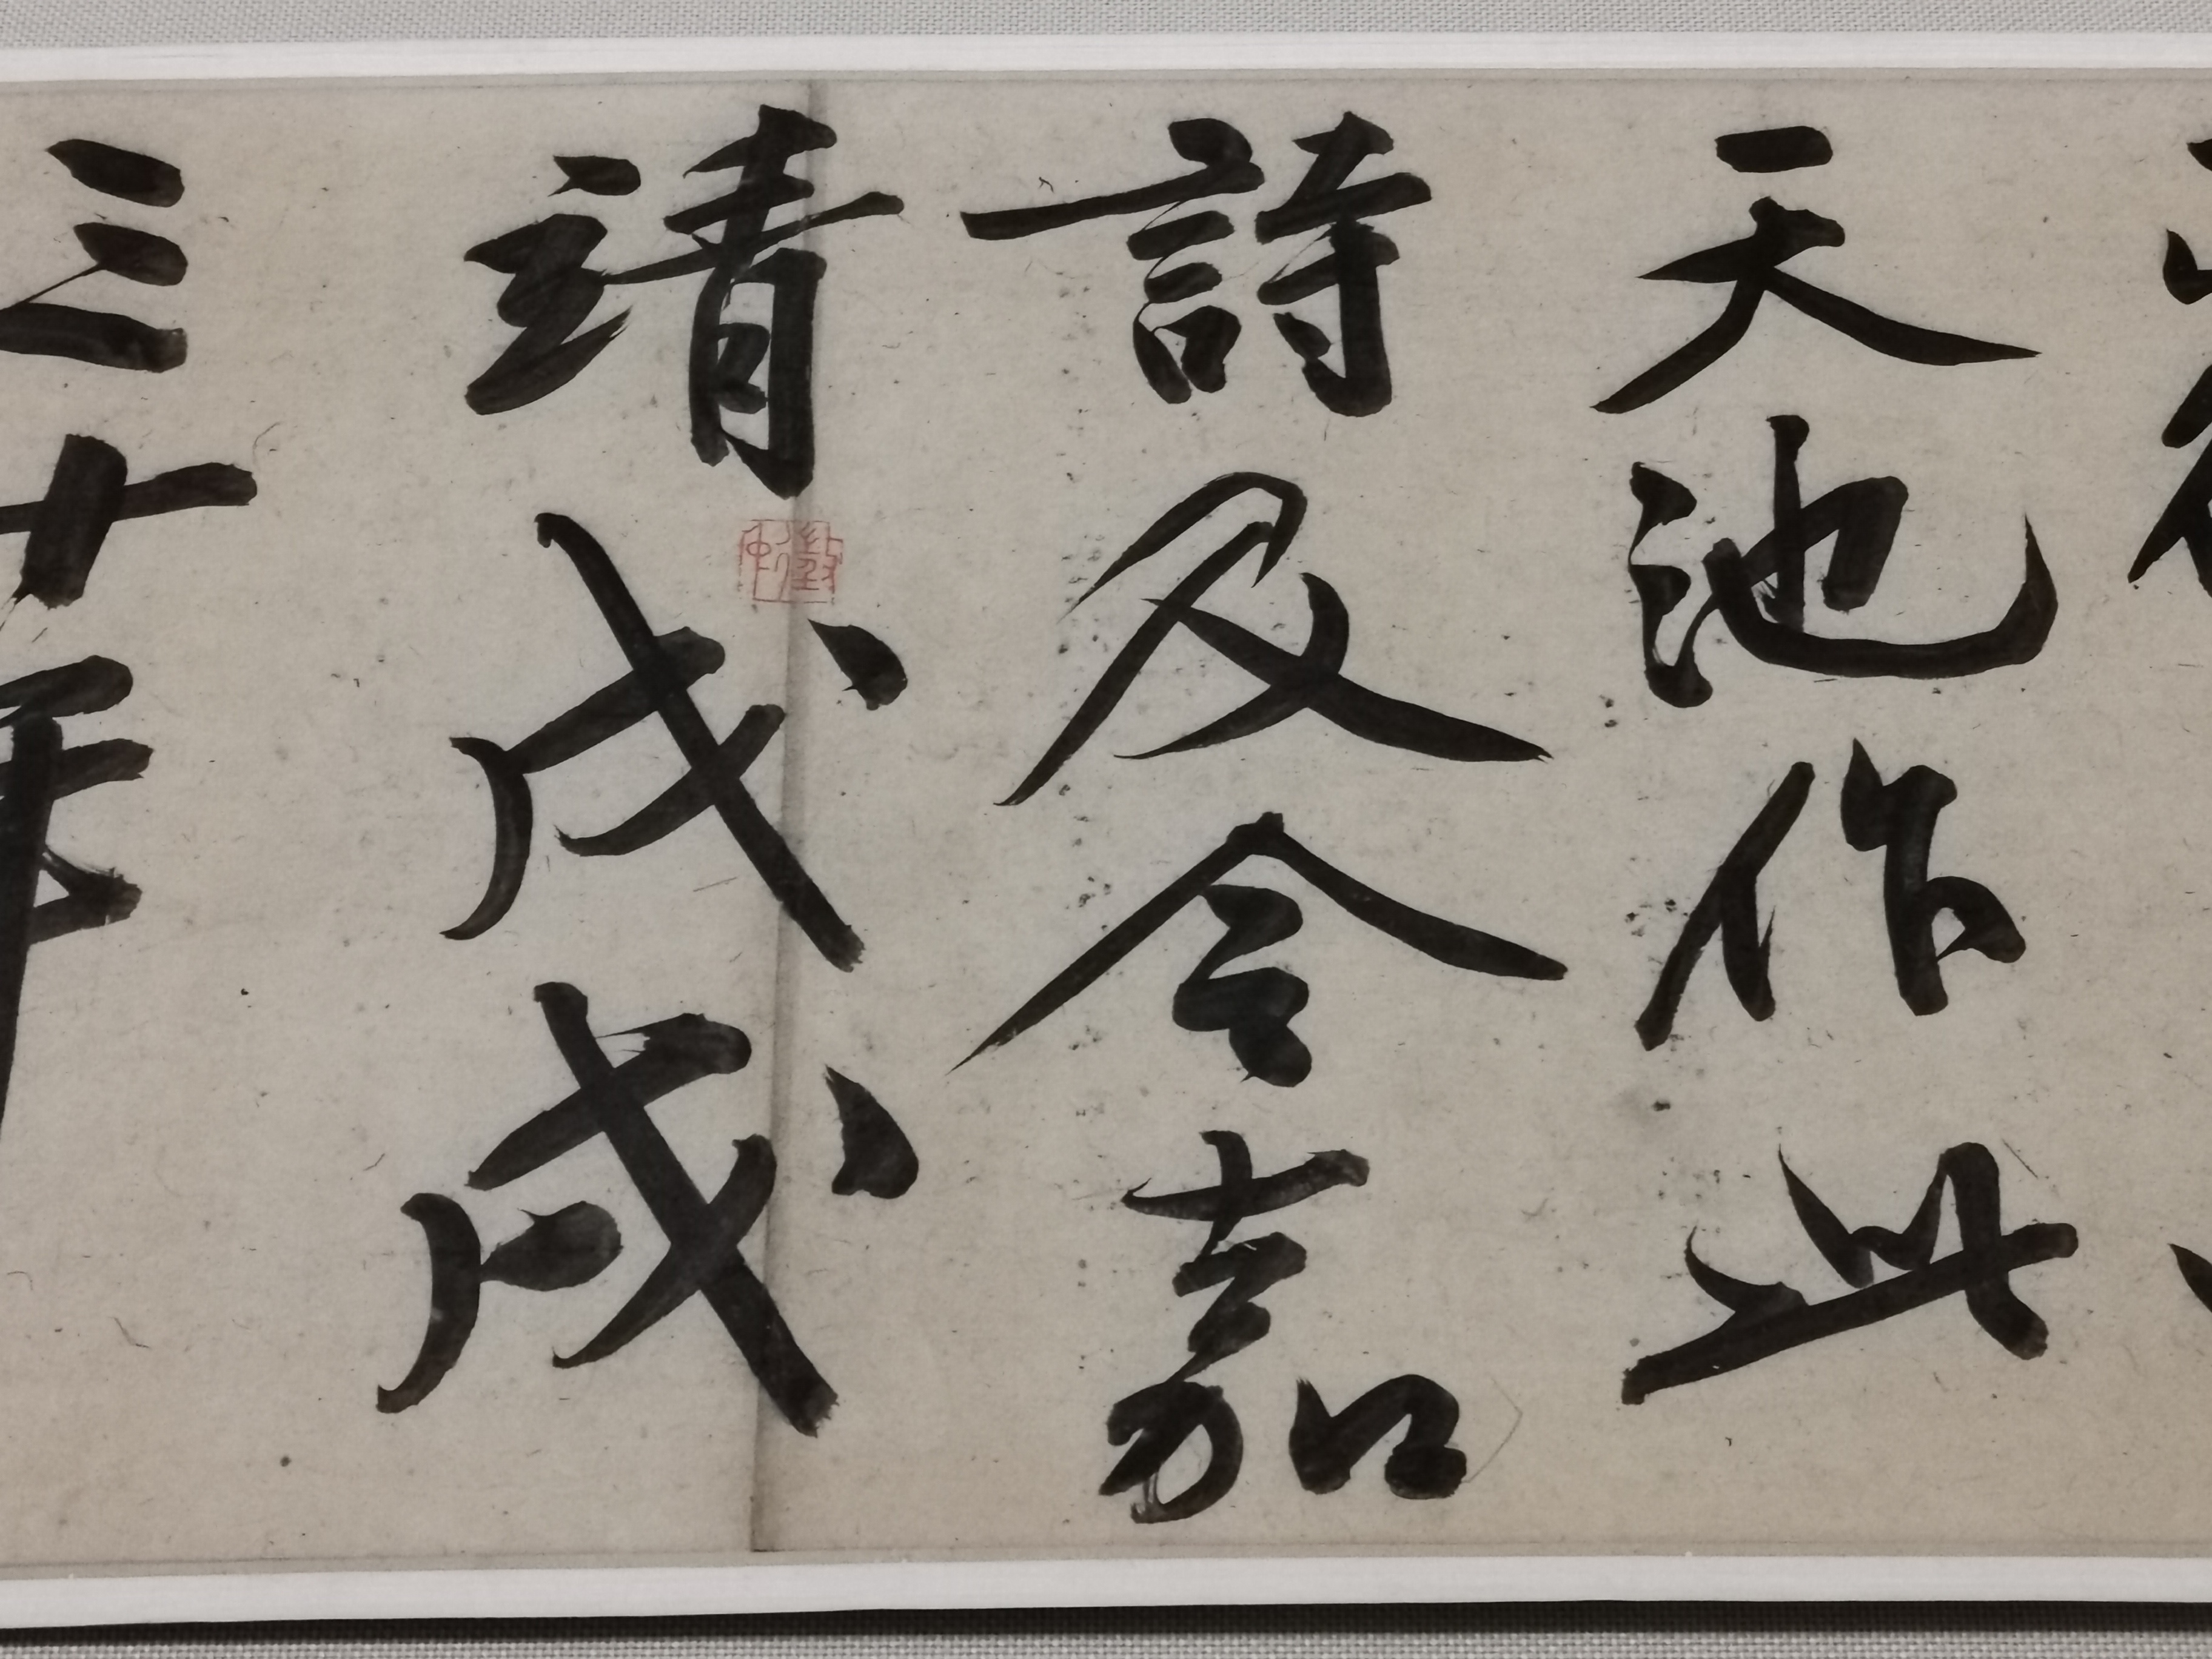 天池作此
詩及今嘉
靖戊戌
三十年